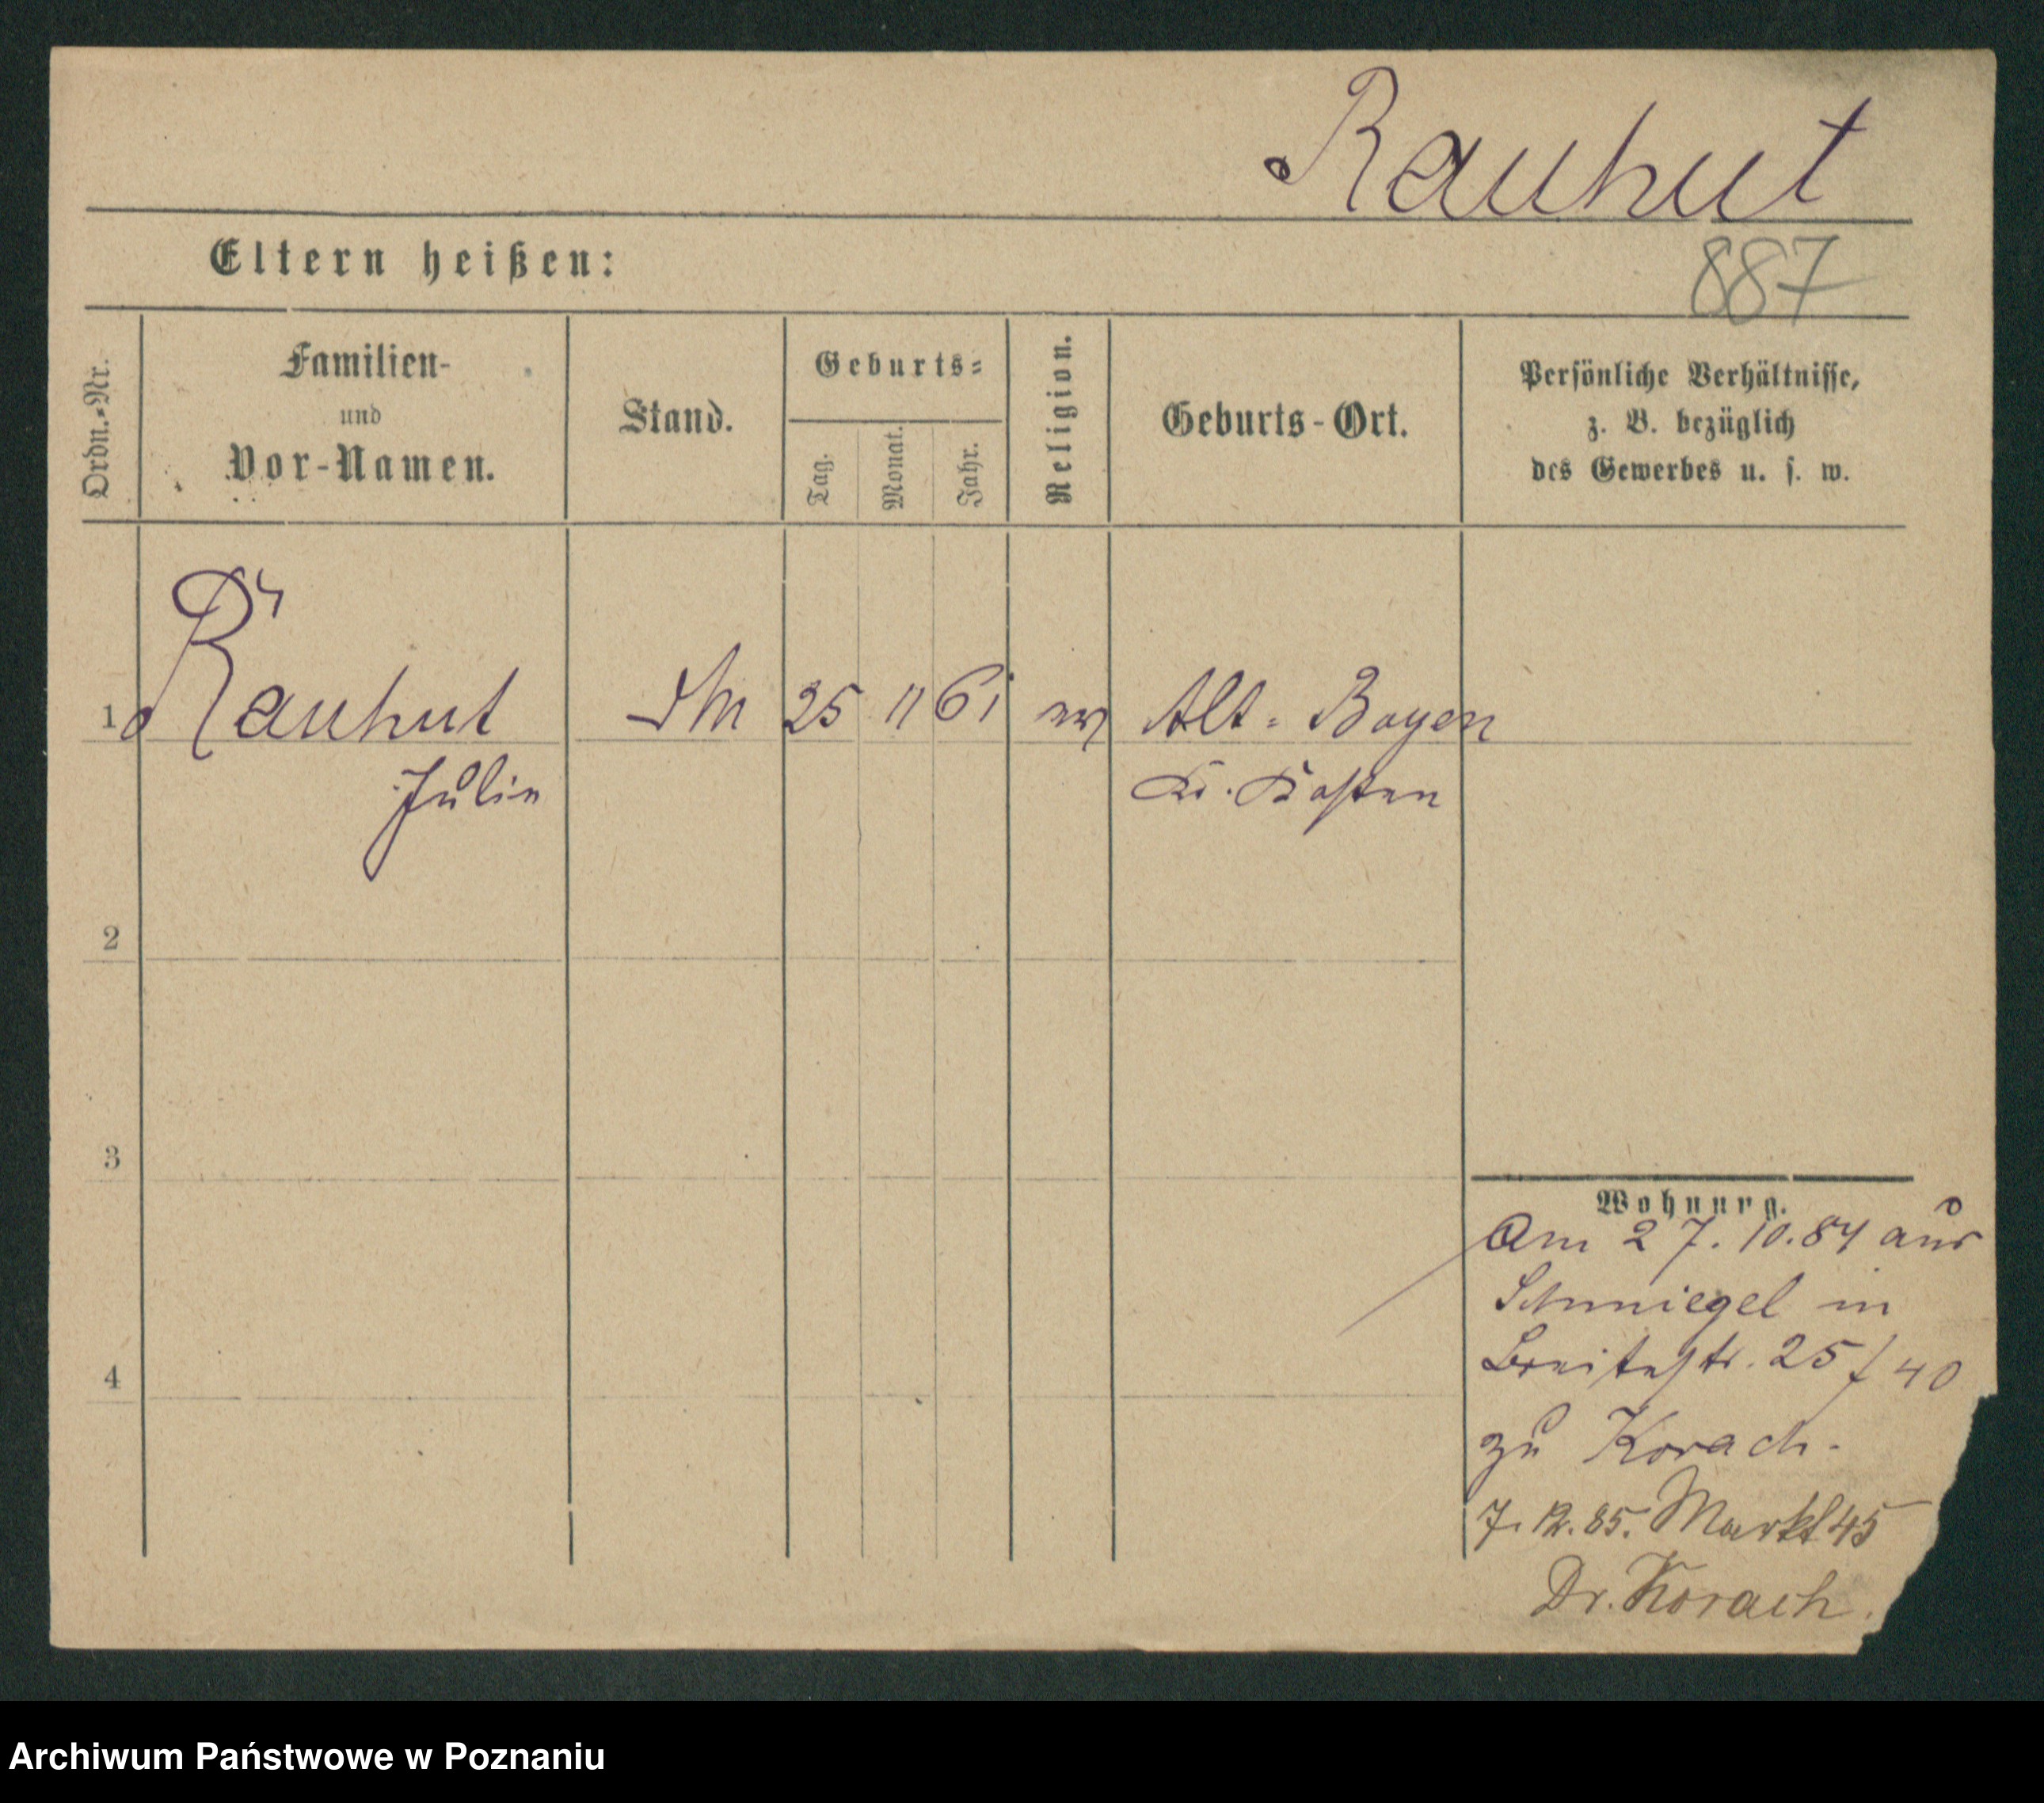 Rauhut
887
Eltern heißen:
Ordn.-Nr.
Familien-
und
Vor-Namen.
Stand.
Geburts-
Tag.
Monat.
Jahr.
Religion.
Geburts-Ort.
Persönliche Verhältnisse,
z. B. bezüglich
des Gewerbes u. s. w.
1 Rauhut 25 11 61 ev Alt-Boyen
Julie Kr. Kosten
2
3
4
Wohnung.
Am 27.10.84 aus
Schmiegel in
Breitestr. 25/40
zu Korach.
7.12.85. Markt 45
Dr. Korach.
Archiwum Państwowe w Poznaniu